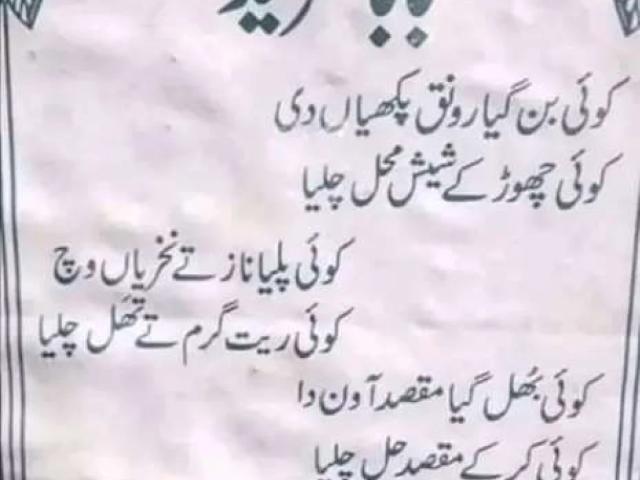 بابا فرید
کوئی بن گیا رونق پکھیاں دی
کوئی چھوڑ کے شیش محل چلیا
کوئی پلیا ناز تے نخریاں وچ
کوئی ریت گرم تے تھل چلیا
کوئی بُھل گیا مقصد آون دا
کوئی کر کے مقصد حل چلیا